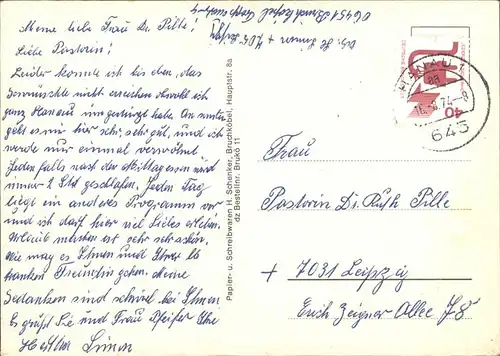 Meine liebe Frau Dr. Pille!
Liebe Pastorin!
Leider konnte ich bis den, das
Gewünschte nicht erreichen obwohl ich
ganz Hanau umgestürzt habe. An
geht es mir hier sehr, sehr gut, und ich
werde nur einmal verwöhnt
jedenfalls nach der Mittagessen wird
immer 2 Std geschlafen, jeden Tag
liegt ein anderes Programm vor
und ich darf hier viel Liebes
Urlaub machen ist sehr sehr schön.
Wie mag es Ihnen und Ihrer lb
kranken Freundin gehen. Meine
Gedanken sind schnell bei Ihnen
Es grüßt Sie und Frau Pfeifer Ihre
Hertha Simon
Papier- u. Schreibwaren H. Schenker, Bruchköbel, Hauptstr. 8a
dz Bestellnr. Brukö 11
HANAU 1
74 - 8
645
40
Frau
Pastorin Dr. Ruth Pille
+ 7031 Leipzig
Erich Zeigner Allee 78